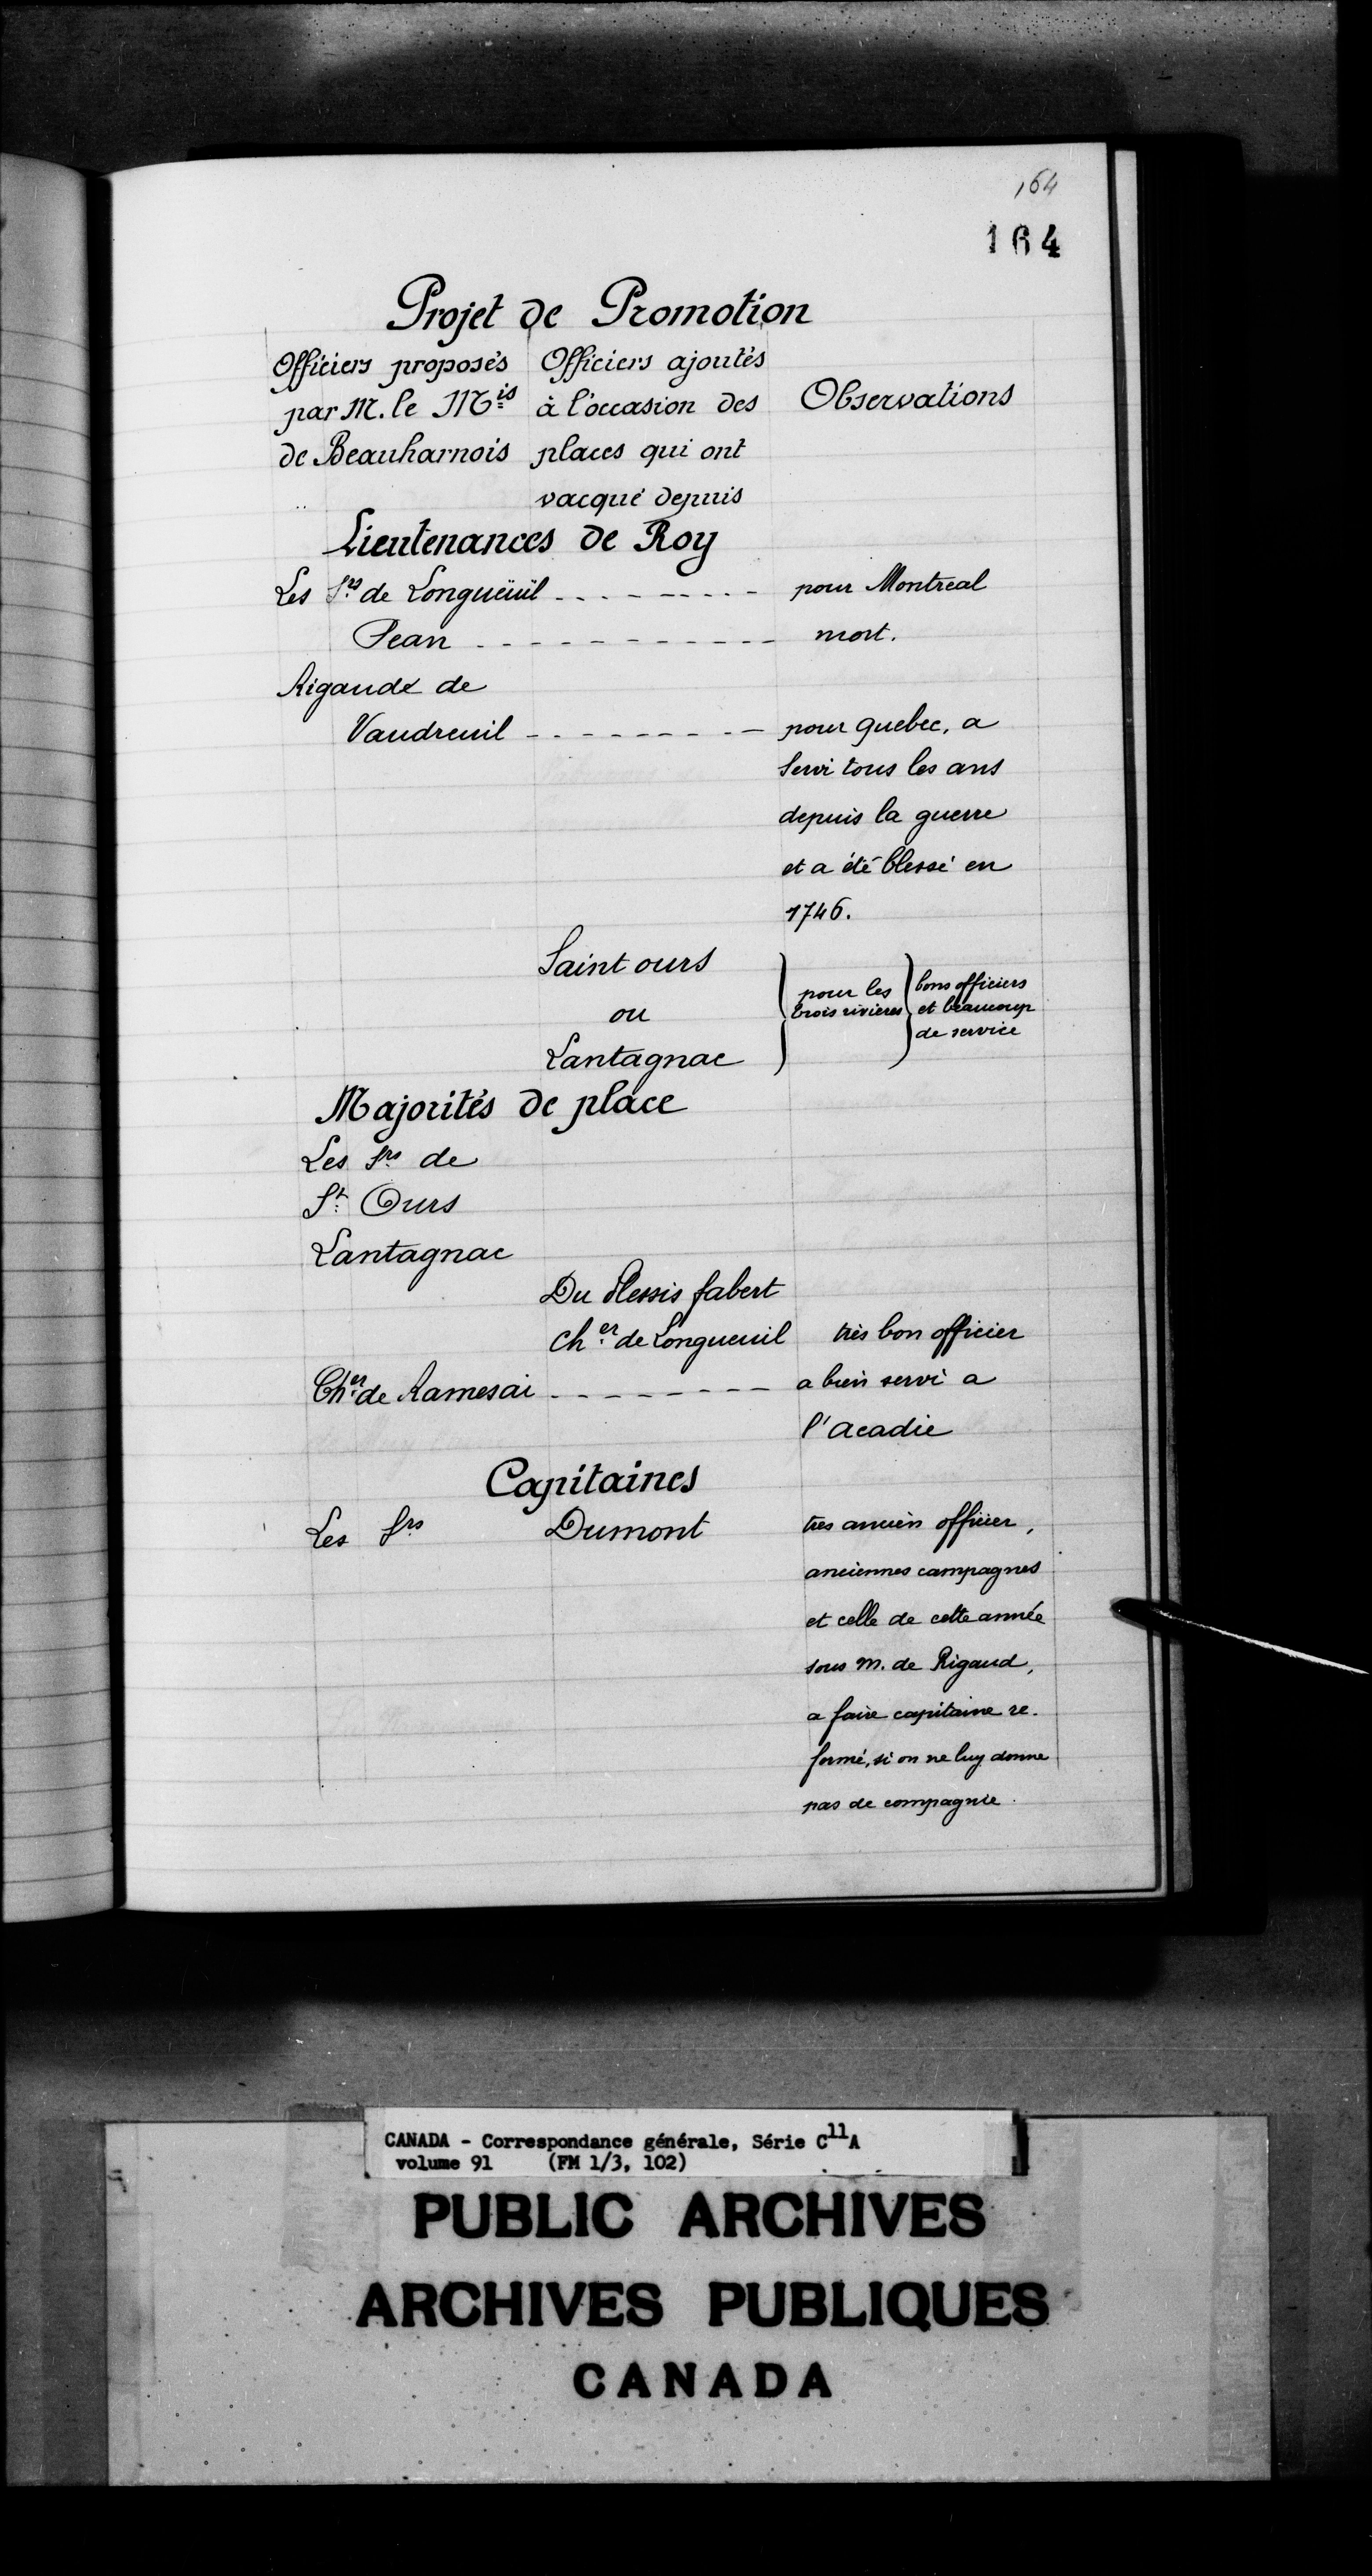 164
164
Projet de Promotion
Officiers proposés Officiers ajoutés
par M. le Mis à l'occasion des Observations
de Beauharnois places qui ont
vacqué depuis
Lieutenances de Roy
Les Srs de Longueüil - - - - - - - - - pour Montreal
Pean - - - - - - - - - - - - mort.
Rigaud de
Vaudreuil - - - - - - - - - - pour quebec, a
servi tous les ans
depuis la guerre
et a été blessé en
1746.
Saint ours
ou
Lantagnac
pour les
trois rivieres
bons officiers
et beaucoup
de service
Majorités de place
Les Srs de
St Ours
Lantagnac
Du Plessis fabert
cher de Longueuil très bon officier
Cher de Ramesai - - - - - - - - - a bien servi a
l'acadie
Capitaines
Les Srs Dumont tres ancien officier,
anciennes campagnes
et celle de cette année
sous m. de Rigaud,
a faire capitaine re-
formé, si on ne luy donne
pas de compagnie.
CANADA - Correspondance générale, Série C11A
volume 91 (FM 1/3, 102)
PUBLIC ARCHIVES
ARCHIVES PUBLIQUES
CANADA